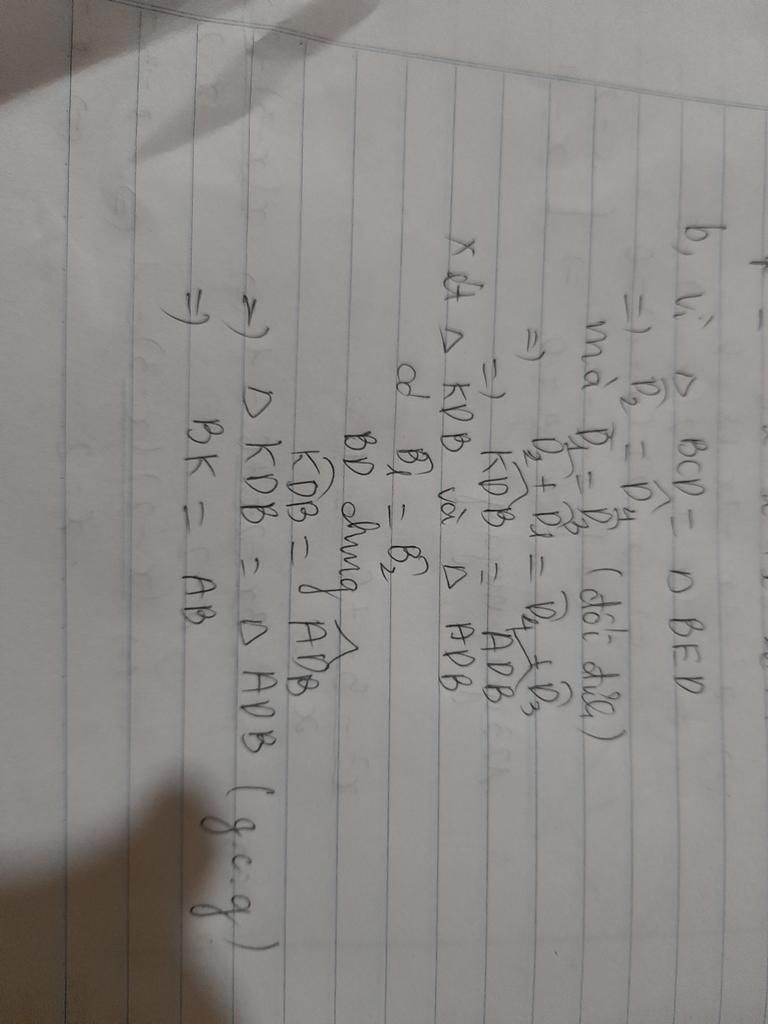 b, Vì Δ BCD = Δ BED
=) D̂₂ = D̂₄
mà D̂₁ = D̂₃ (đối đỉnh)
=) D̂₂ + D̂₁ = D̂₄ + D̂₃
=) K̂DB = ÂDB
Xét Δ KDB và Δ ADB
có B̂₁ = B̂₂
BD chung
K̂DB = ÂDB
=) Δ KDB = Δ ADB (g.c.g)
=) BK = AB